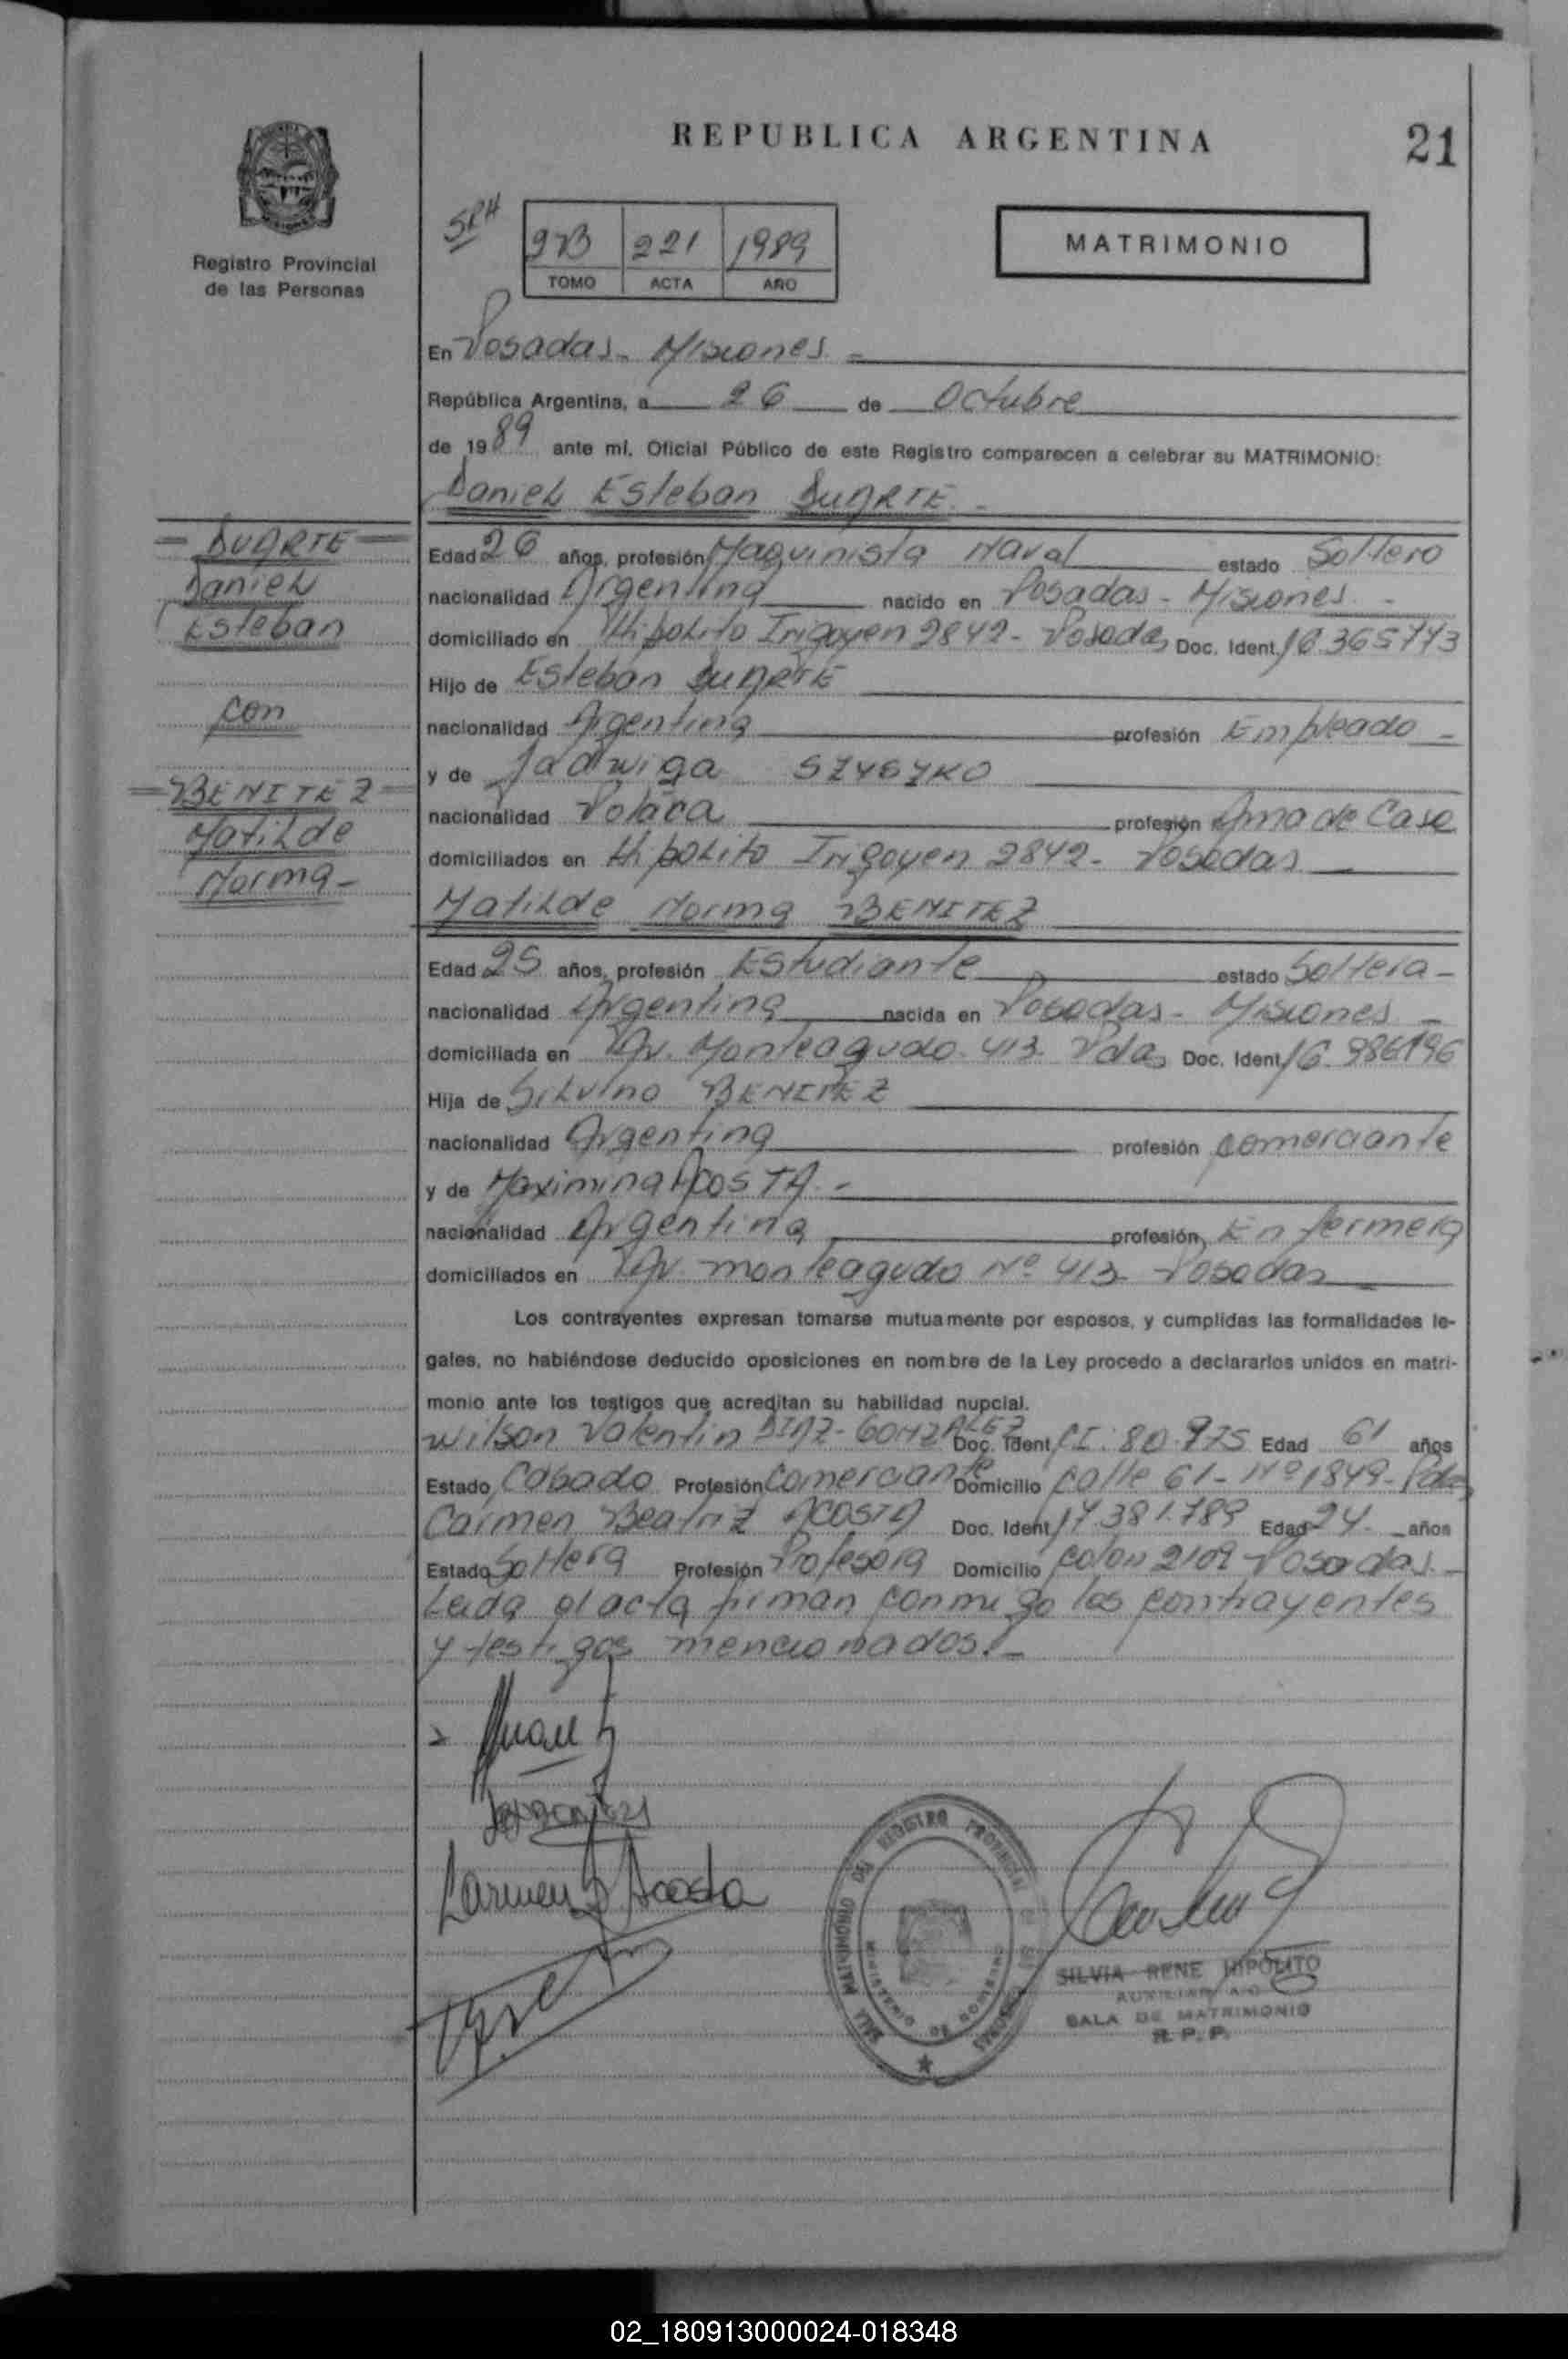 REPUBLICA ARGENTINA
21
Registro Provincial
de las Personas
SRH
2B 221 1989
TOMO ACTA AÑO
MATRIMONIO
En Posadas - Misiones -
República Argentina, a 26 de Octubre
de 1989 ante mi, Oficial Público de este Registro comparecen a celebrar su MATRIMONIO:
Daniel Esteban DUARTE -
= DUARTE =
Daniel
Esteban
con
= BENITEZ =
Matilde
Norma -
Edad 26 años, profesión Maquinista Naval estado Soltero
nacionalidad Argentina nacido en Posadas - Misiones -
domiciliado en Hipolito Irigoyen 2842 - Posadas Doc. Ident. 16.365773
Hijo de Esteban DUARTE
nacionalidad Argentina profesión Empleado -
y de Jadwiga
nacionalidad Polaca profesión Ama de Casa
domiciliados en Hipolito Irigoyen 2842 - Posadas
Matilde Norma BENITEZ
Edad 25 años, profesión Estudiante estado Soltera -
nacionalidad Argentina nacida en Posadas - Misiones -
domiciliada en Av. Monteagudo 413 Pdas Doc. Ident 16.986196
Hija de Silvino BENITEZ
nacionalidad Argentina profesión comerciante
y de Maximina ACOSTA -
nacionalidad Argentina profesión Enfermera
domiciliados en Av. monteagudo Nº 413 Posadas
Los contrayentes expresan tomarse mutuamente por esposos, y cumplidas las formalidades le-
gales, no habiéndose deducido oposiciones en nombre de la Ley procedo a declararlos unidos en matri-
monio ante los testigos que acreditan su habilidad nupcial.
Wilson Valentin DIAZ - GONZALEZ Doc. Ident CI: 80.975 Edad 61 años
Estado Casado Profesión Comerciante Domicilio calle 61 - Nº 1849 - Pdas
Carmen Beatriz ACOSTA Doc. Ident 17.381.789 Edad 24 años
Estado Soltera Profesión Profesora Domicilio Colon 2102 - Posadas -
Leida el acta firman conmigo los contrayentes
y testigos mencionados. -
Carmen B Acosta
SALA MATRIMONIO DEL REGISTRO PROVINCIAL
SILVIA RENE HIPOLITO
SALA DE MATRIMONIO
R. P. P.
02_180913000024-018348